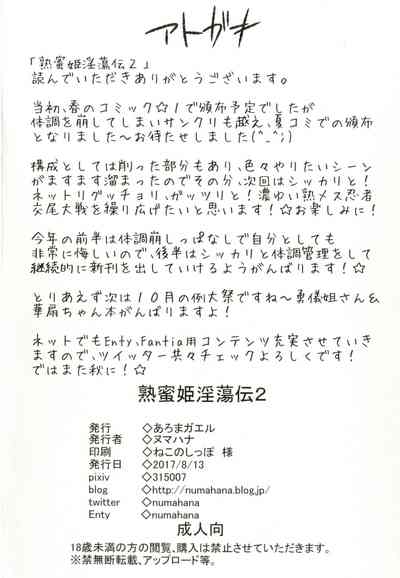 アトガキ
「熟蜜姫淫蕩伝2」
読んでいただきありがとうございます。
当初、春のコミック☆1で頒布予定でしたが
体調を崩してしまいサンクリも越え、夏コミでの頒布
となりました～お待たせしました(^_^;)
構成としては削った部分もあり、色々やりたいシーン
がますます溜まったのでその分、次回はシッカリと!
ネットリグッチョリ、ガッツリと!濃ゆい熟メス忍者
交尾大戦を繰り広げたいと思います!☆お楽しみに!
今年の前半は体調崩しっぱなしで自分としても
非常に悔しいので、後半はシッカリと体調管理をして
継続的に新刊を出していけるようがんばります!☆
とりあえず次は10月の例大祭ですね～勇儀姐さん&
華扇ちゃん本がんばりますよ!
ネットでもEnty、Fantia用コンテンツ充実させていき
ますので、ツイッター共々チェックよろしくです!
ではまた秋に!☆
熟蜜姫淫蕩伝2
発行 ◇あろまガエル
発行者 ◇ヌマハナ
印刷 ◇ねこのしっぽ 様
発行日 ◇2017/8/13
pixiv ◇315007
blog ◇http://numahana.blog.jp/
twitter ◇numahana
Enty ◇numahana
成人向
18歳未満の方の閲覧、購入は禁止させていただきます。
※禁無断転載、アップロード等。